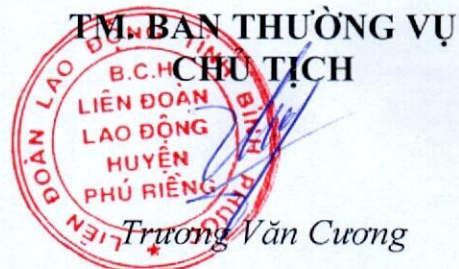 TM. BAN THƯỜNG VỤ
CHỦ TỊCH
LIÊN ĐOÀN LAO ĐỘNG TỈNH BÌNH PHƯỚC
B.C.H
LIÊN ĐOÀN
LAO ĐỘNG
HUYỆN
PHÚ RIỀNG
Trương Văn Cương